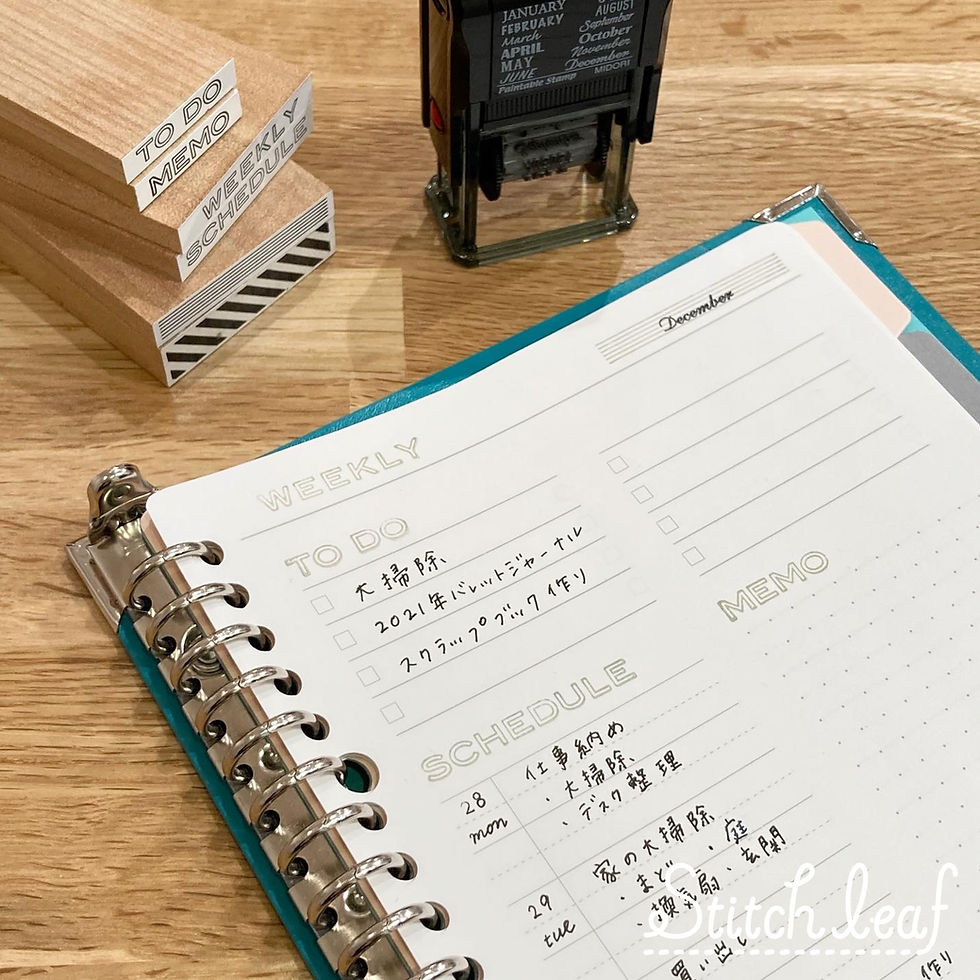 TO DO
MEMO
WEEKLY
SCHEDULE
JANUARY
FEBRUARY
March
APRIL
MAY
JUNE
AUGUST
September
October
November
December
Paintable Stamp MIDORI
December
WEEKLY
TO DO
大掃除
2021年バレットジャーナル
スクラップブック作り
MEMO
SCHEDULE
28
mon
仕事納め
・大掃除
・デスク整理
29
tue
家の大掃除
・まど ・庭
・換気扇 ・玄関
買い出し
作り
Stitch leaf